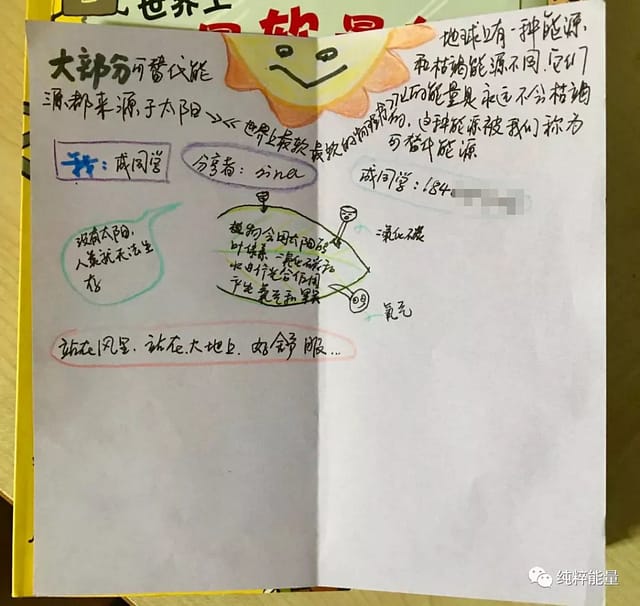 世界上
大部分可替代能
源都来源于太阳
地球上有一种能源
和枯竭能源不同,它们
的能量是永远不会枯竭
的,这种能源被我们称为
可替代能源
《世界上最软最软的
戚同学
分享者:sina
戚同学:184
没有太阳,
人类就无法生
存
植物会用太阳的
二氧化碳
水进行光合作用
产生氧气和
二氧化碳
氧气
站在风里、站在大地上、好舒服...
纯粹能量